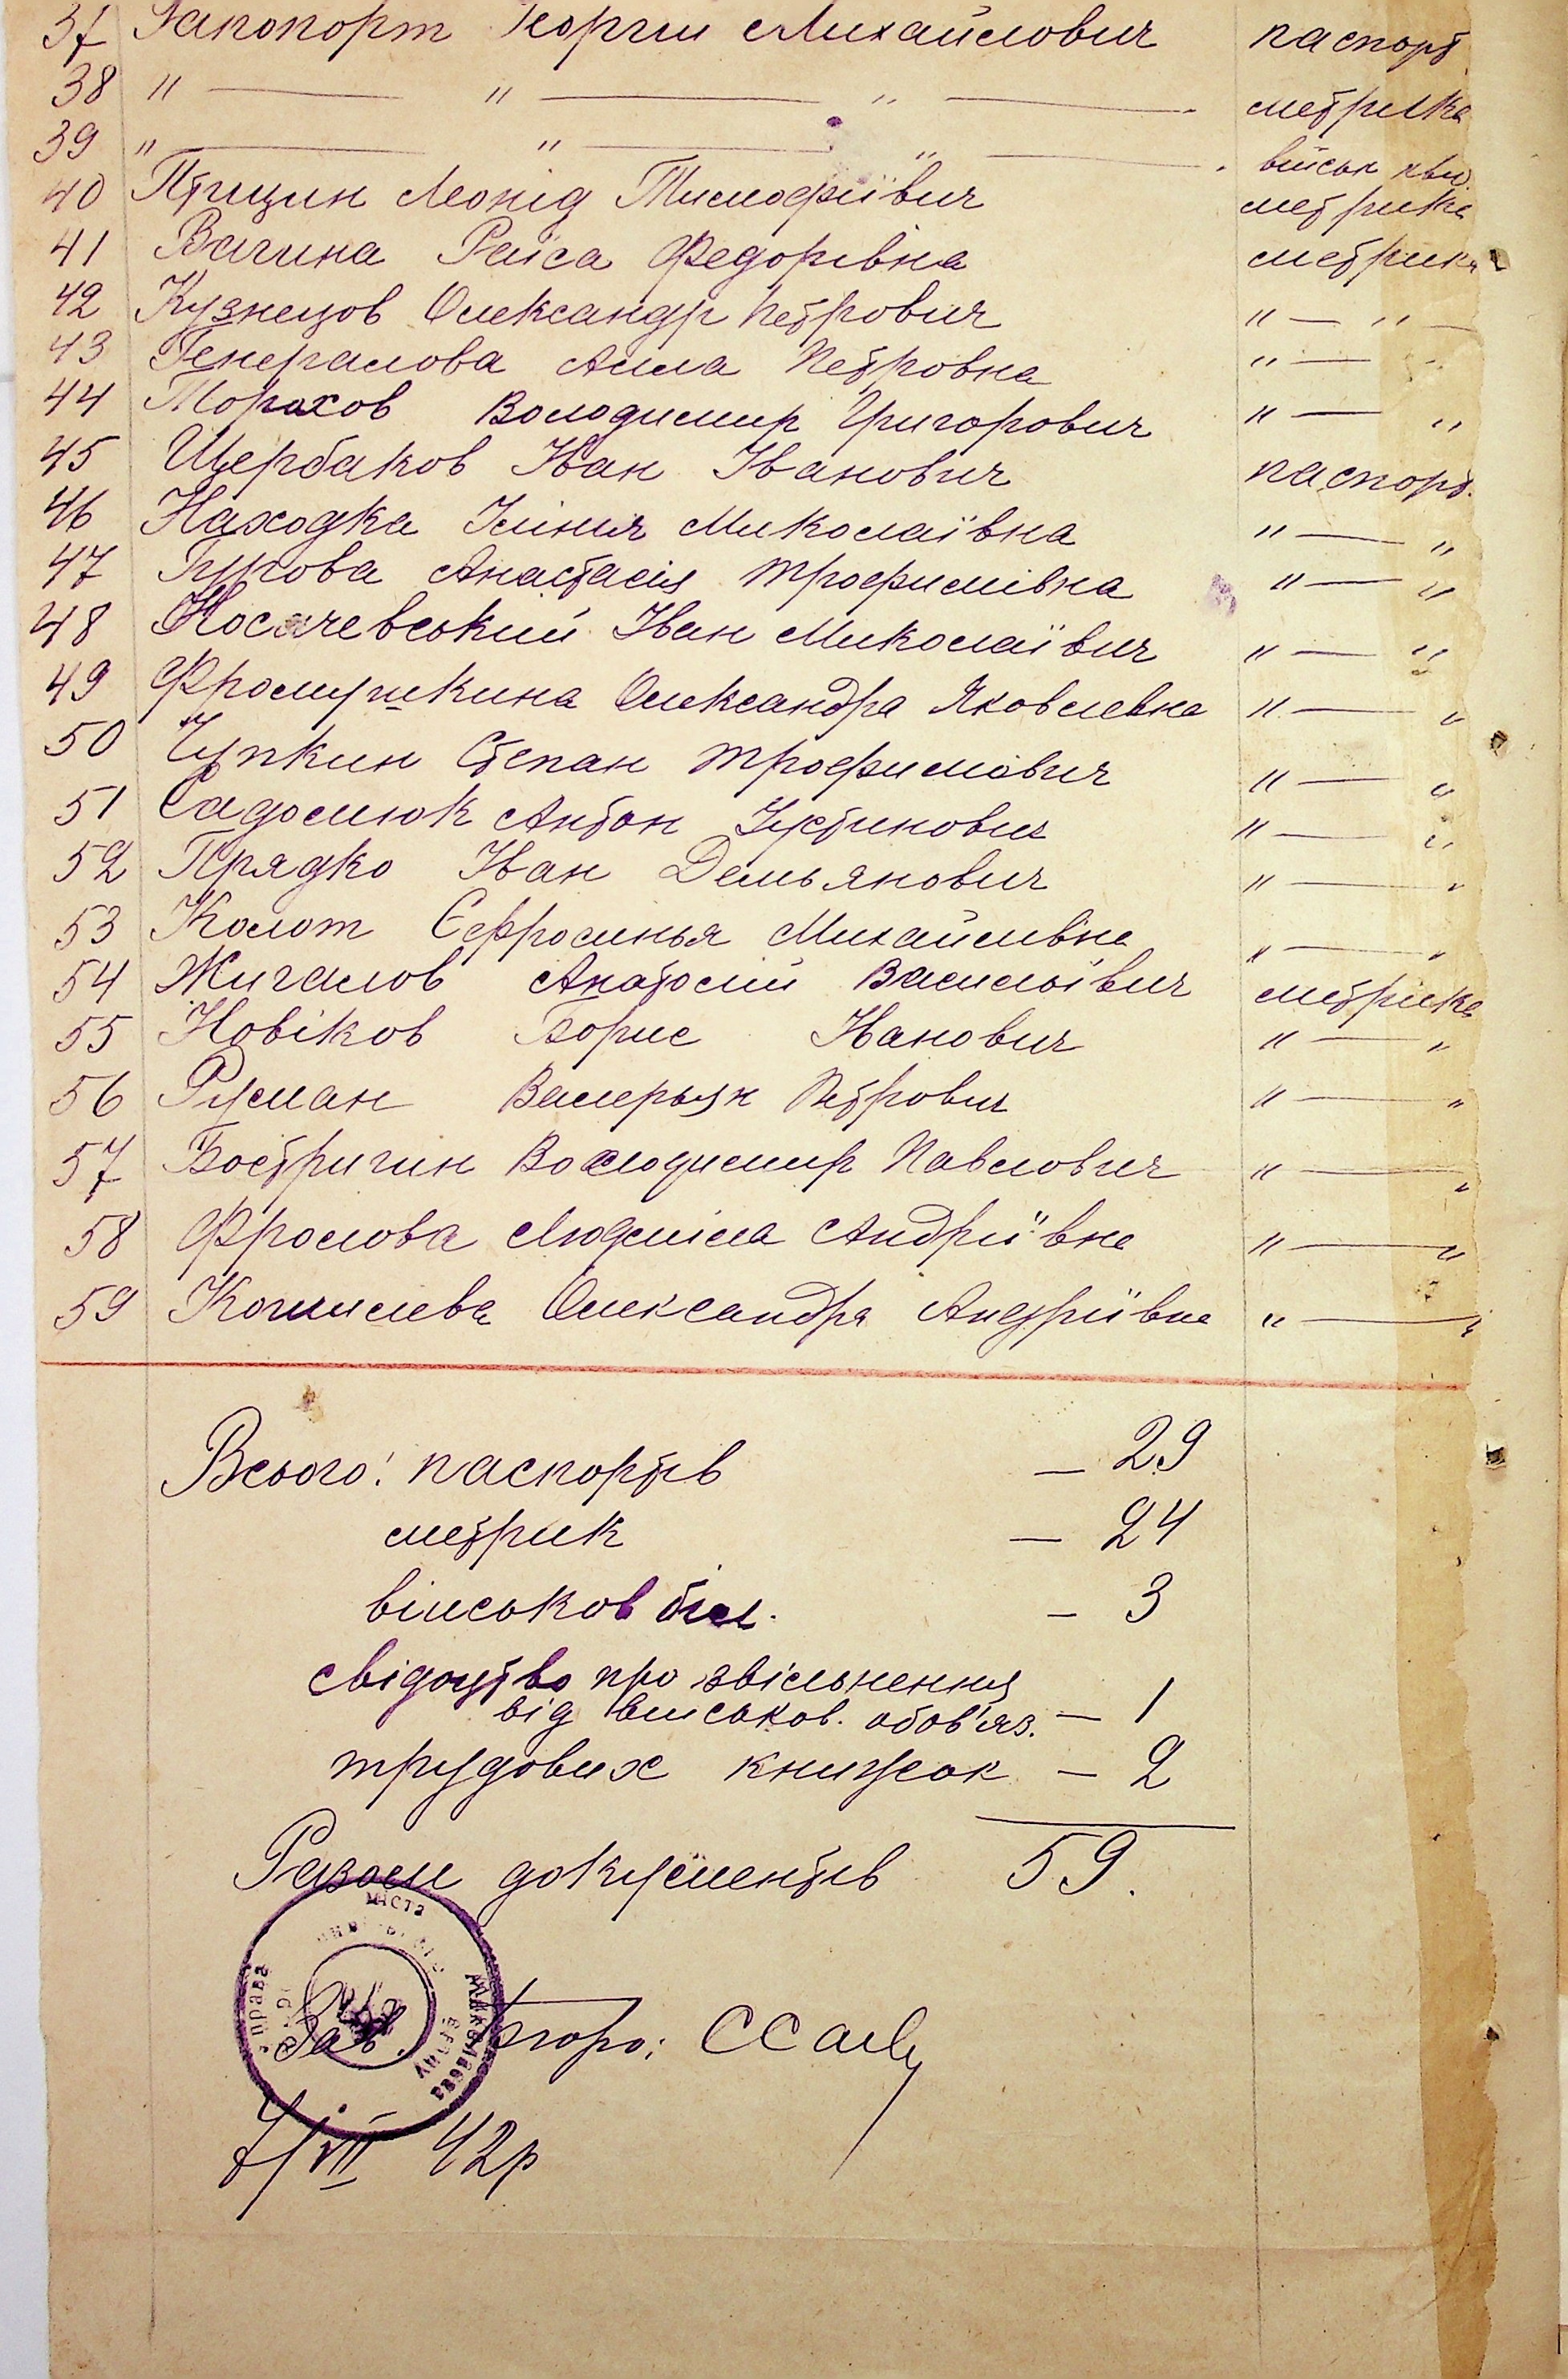 37 Рапопорт Георгий Михайлович паспорт
38 " — " — " — метрика
39 " — " — " — військ. кви.
40 Птицин Леонід Тимофіївич метрика
41 Вагина Раїса Федорівна метрика
42 Кузнецов Олександр Петрович " — "
43 Генералова Алла Петровна " — "
44 Морахов Володимир Григорович " — "
45 Щербаков Іван Іванович паспорт.
46 Находка Ксінія Миколаївна " — "
47 Гурова Анастасія Трофимівна " — "
48 Носачевський Іван Миколаївич " — "
49 Фромушкина Олександра Яковлевна " — "
50 Чупкин Степан Трофимович " — "
51 Садомюк Антон Устинович " — "
52 Прядко Іван Демьянович " — "
53 Колот Єфросинья Михайлівна " — "
54 Жигалов Анатолій Васильївич метрика
55 Новіков Борис Іванович " — "
56 Русман Валерьян Петрович " — "
57 Бостригин Володимир Павлович " — "
58 Фролова Людміла Андріївна " — "
59 Кошелева Олександра Андріївна " — "
Всього: паспортів — 29
метрик — 24
військов біл. — 3
свідоцтво про звільнення
від військов. обов'яз. — 1
трудових книжок — 2
Разом документів 59.
міста
Миколаєва
управа
Зав. Бюро:
7/VII 42р